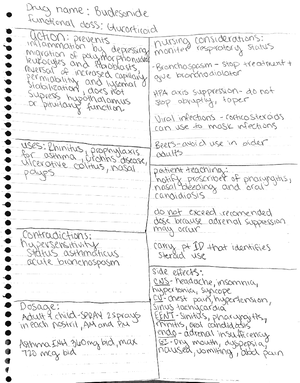 Drug name: Budesonide
Functional class: Glucorticoid
action: prevents
inflammation by depressing
migration of polymorphonuclear
leukocytes and fibroblasts,
reversal of increased capillary
permeability and lysosomal
stabilization, does not
supress hypothalamus
or pituitary function.
uses: Rhinitus, prophylaxis
for asthma, crohn's disease,
ulcerative colitus, nasal
polyps
Contradictions:
hypersensitivity
status asthmaticus
acute bronchospasm
Dosage:
Adult & child- SPRAY 2 sprays
in each nostril, AM and PM
Asthma INH 360mg bid, max
720 mcg bid
nursing considerations:
monitor respiratory status
- Bronchospasm - stop treatment +
give bronchodilator
HPA axis suppression- do not
stop abruptly, taper
Viral infections - corticosteroids
can use to mask infections
Beers- avoid use in older
adults
patient teaching:
notify prescriber of pharyngitis,
nasal bleeding and oral
candidiasis
do not exceed recomended
dose brause adrenal suppression
may occur
carry pt ID that identifies
steroid use
side effects:
CNS- headache, insomnia,
hypertonia, syncope
CV- chest pain, hypertension,
sinus tachycardia
EENT- sinitis, pharyngitis,
rhinitis, oral candidiasis
Endo- adrenal insufficiency
GI- Dry mouth, dyspepsia,
nausea, vomiting, abd pain